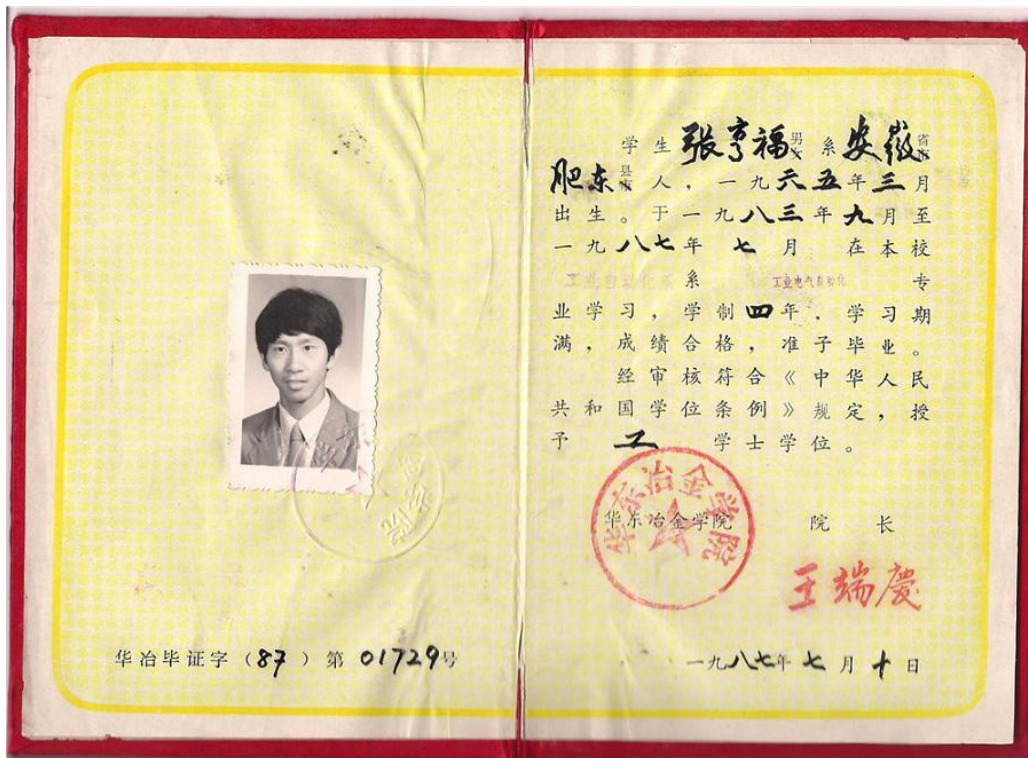 学生张亨福男女系安徽省市
肥东县市人，一九六五年三月
出生。于一九八三年九月至
一九八七年七月在本校
工业自动化系系工业电气自动化专
业学习，学制四年，学习期
满，成绩合格，准予毕业。
经审核符合《中华人民
共和国学位条例》规定，授
予工学士学位。
华东冶金学院院长
华东冶金学院
王端庆
华冶毕证字（87）第01729号
一九八七年七月十日